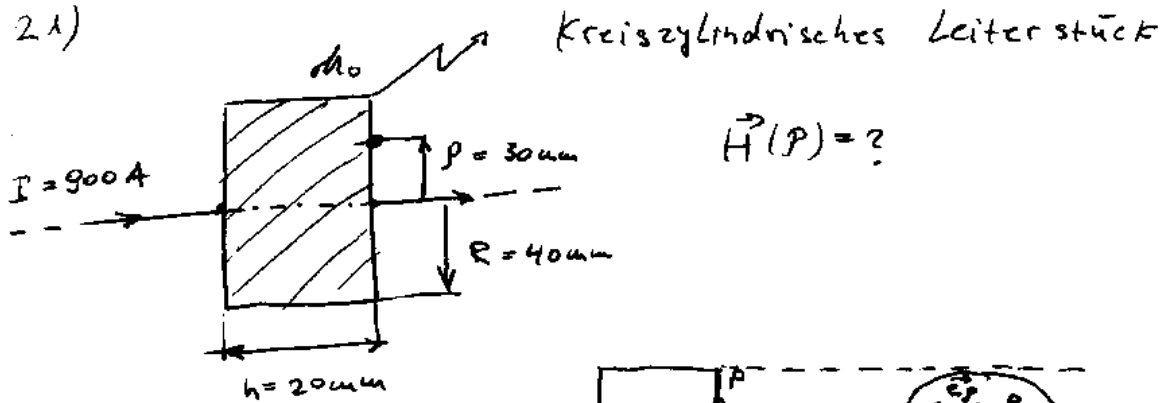 21)
Kreiszylindrisches Leiterstück
μ₀
H⃗(P) = ?
I = 900 A
ρ = 30 mm
R = 40 mm
h = 20 mm
P
e⃗ρ